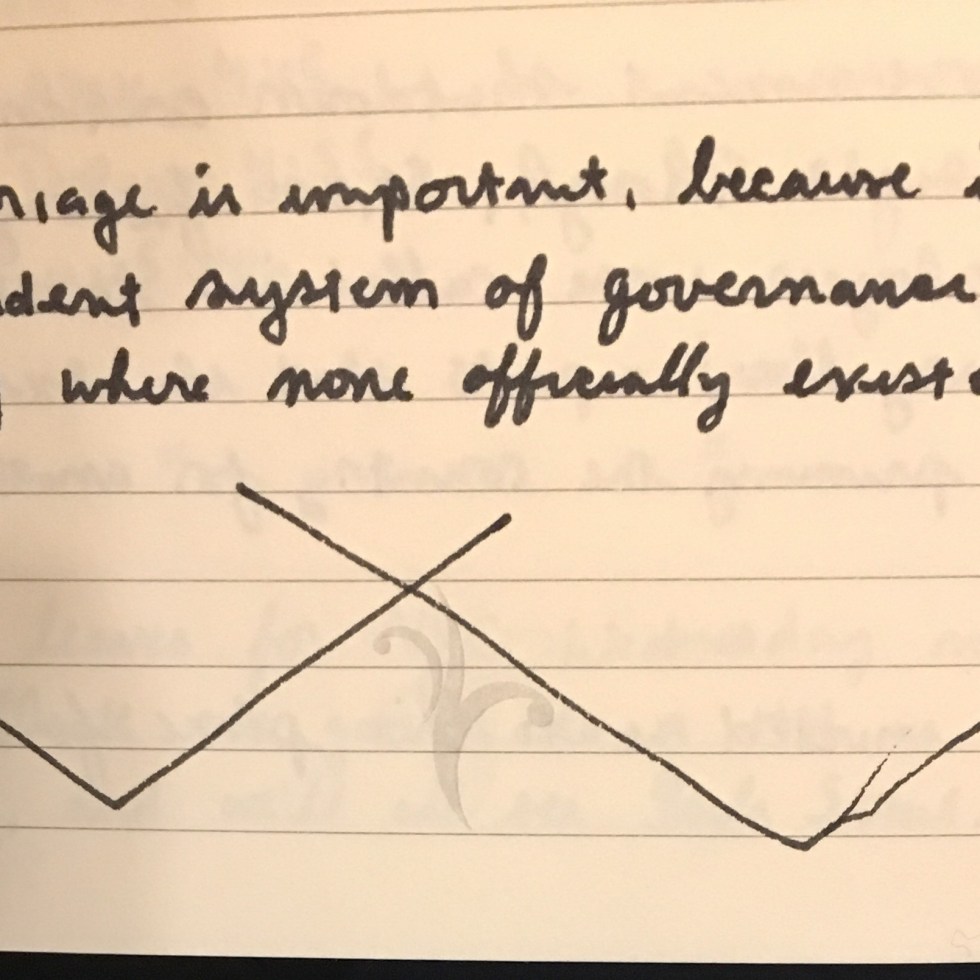 riage is important, because
dent system of governance
where none officially exist